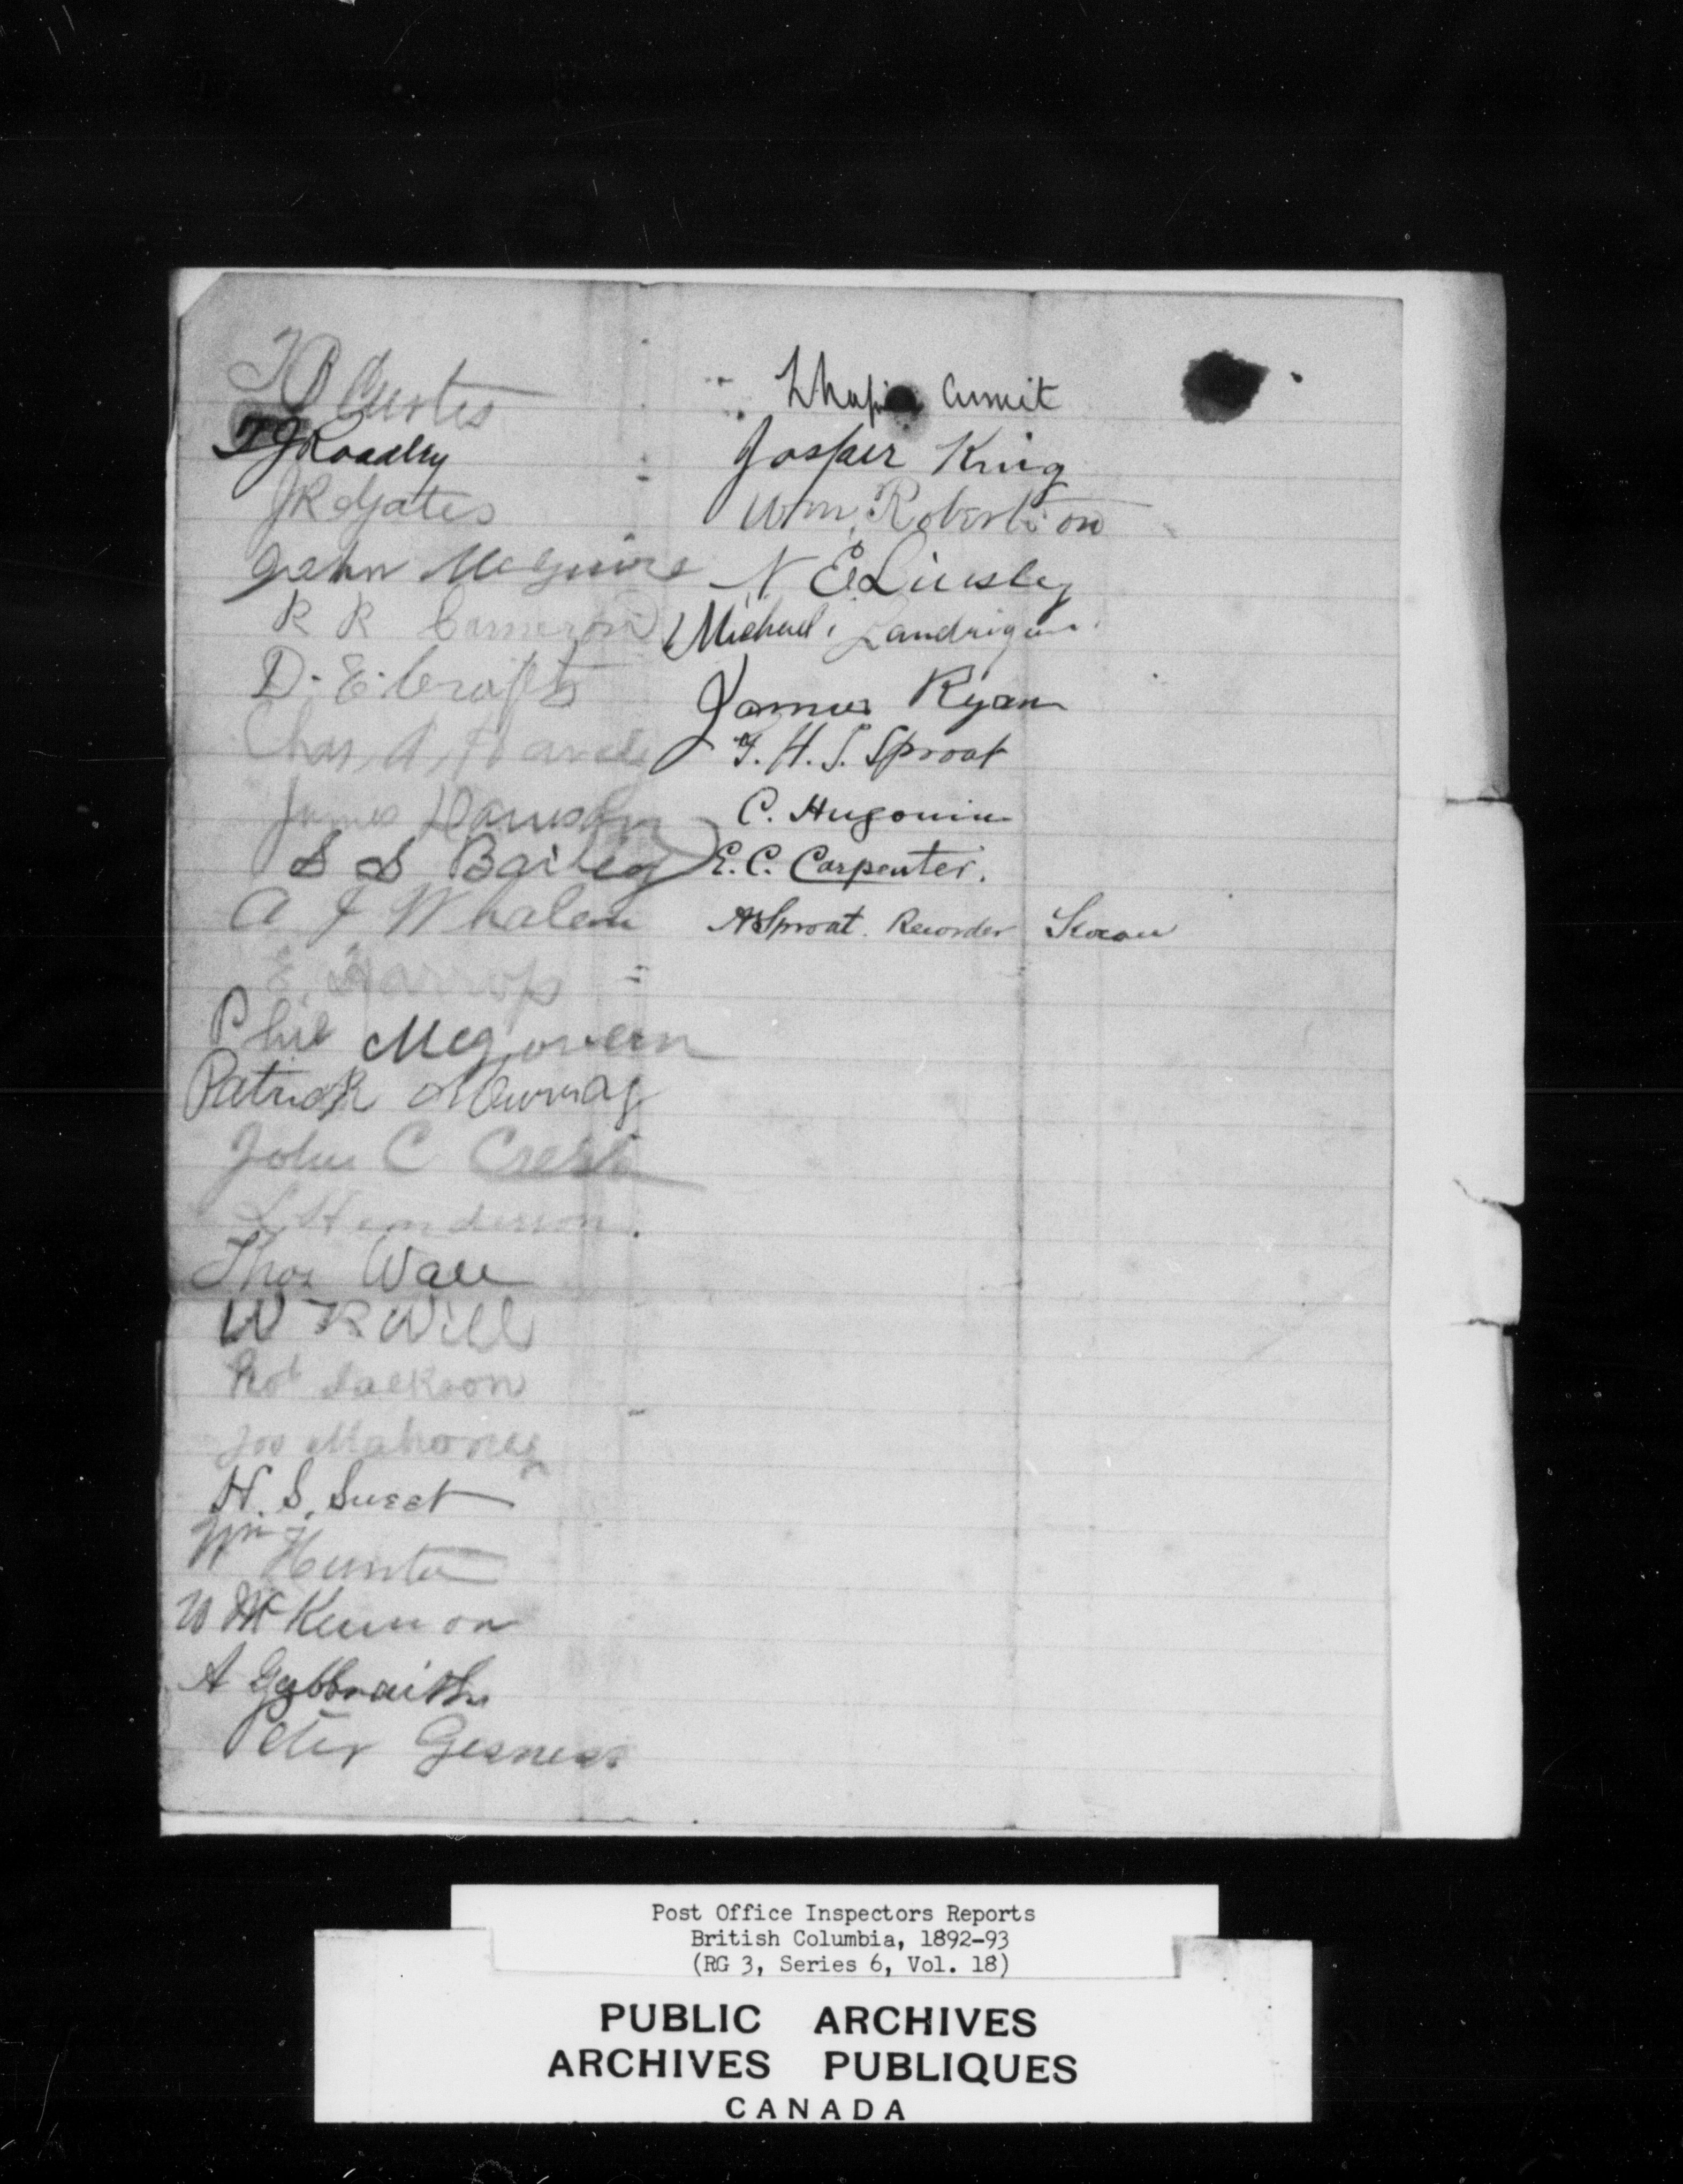 T B Curtis
T J Roadley
J R Gates
John McGuire
R R Cameron
D. E. Crofts
Chas A
James Dawson
S S Bailey
A J Whalen
E. Harrop
Phil McGovern
Patrick Murray
John C
L Henderson.
Thos Wall
W R Will
Rob Jackson
Jos Mahoney
H. S. Sweet
Wm Hunter
W McKinnon
A Galbraith
Peter
Jasper King
Wm. Robertson
N E Linsley
Michael Landrigan.
James Ryan
T. H. S. Sproat
C. Hugonin
E. C. Carpenter.
A Sproat. Recorder Slocan
Post Office Inspectors Reports
British Columbia, 1892-93
(RG 3, Series 6, Vol. 18)
PUBLIC ARCHIVES
ARCHIVES PUBLIQUES
CANADA